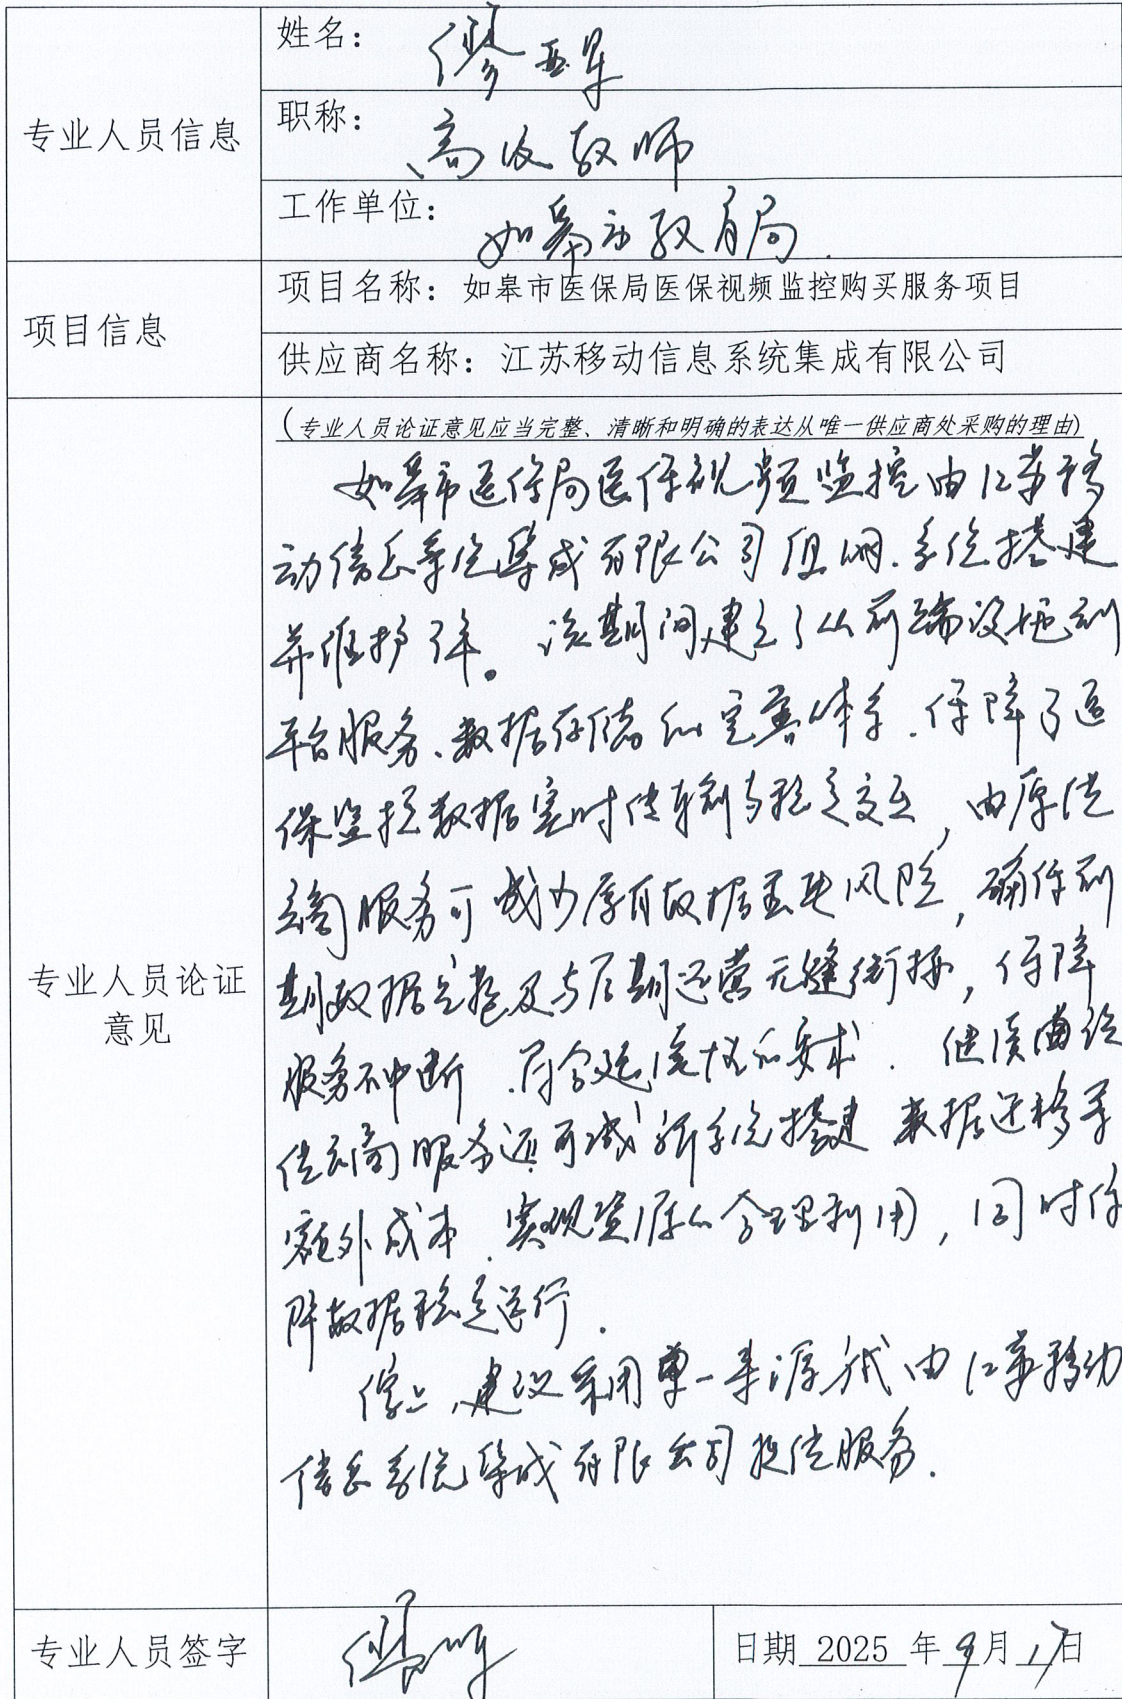 专业人员信息
姓名：
职称：高级教师
工作单位：如皋市教育局
项目信息
项目名称：如皋市医保局医保视频监控购买服务项目
供应商名称：江苏移动信息系统集成有限公司
专业人员论证
意见
(专业人员论证意见应当完整、清晰和明确的表达从唯一供应商处采购的理由)
如皋市医保局医保视频监控由江苏移
动信息系统集成有限公司组网、系统搭建
并维护3年。该期间建立了从前端设施到
平台服务、数据存储的完善体系，保障了医
保监控数据实时传输与稳定交互，由原供
应商服务可减少原有数据丢失风险，确保前
期数据完整及与后期运营无缝衔接，保障
服务不中断，符合延续性和要求。继续由该
供应商服务还可减新系统搭建、数据迁移等
额外成本，实现资源的合理利用，同时保
障数据稳定运行。
综上，建议采用单一来源方式由江苏移动
信息系统集成有限公司提供服务。
专业人员签字
日期 2025 年9月17日